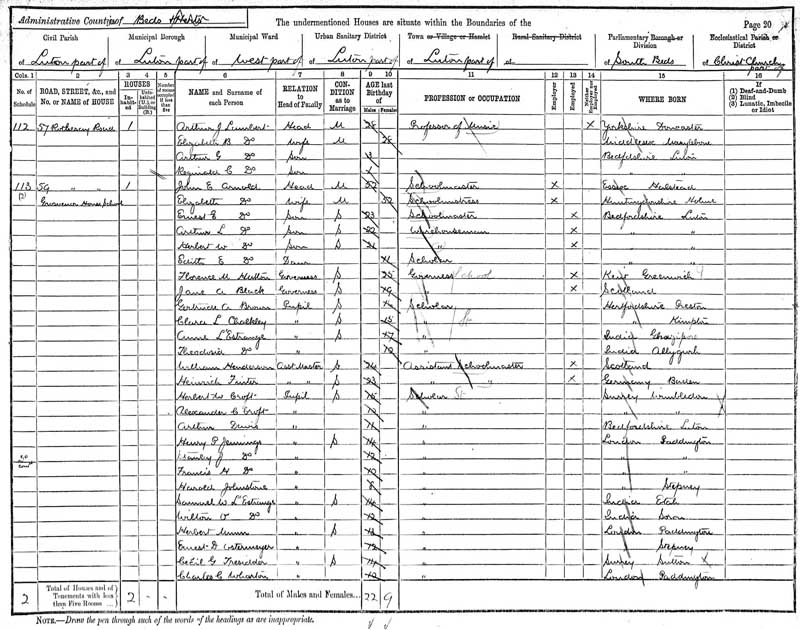 Administrative County of Beds & Herts The undermentioned Houses are situate within the Boundaries of the Page 20
Civil Parish Municipal Borough Municipal Ward Urban Sanitary District Town or Village or Hamlet Rural Sanitary District Parliamentary Borough or Division Ecclesiastical Parish or District
of Luton part of of Luton part of of West part of of Luton part of of Luton part of of of South Beds of Christ Church part of
Cols. 1 2 3 4 5 6 7 8 9 10 11 12 13 14 15 16
No. of Schedule ROAD, STREET, &c., and No. or NAME of HOUSE HOUSES Inhabited Uninhabited (U.), or Building (B.) Number of rooms occupied if less than five NAME and Surname of each Person RELATION to Head of Family CONDITION as to Marriage AGE last Birthday of Males Females PROFESSION or OCCUPATION Employer Employed Neither Employer nor Employed WHERE BORN If (1) Deaf-and-Dumb (2) Blind (3) Lunatic, Imbecile or Idiot
112 57 Rothesay Road 1 Arthur J Lambert Head M 28 Professor of Music X Yorkshire Doncaster
Elizabeth B Do Wife M 28 Middlesex Marylebone
Arthur G Do Son 3 Bedfordshire Luton
Reginald C Do Son
113 59 " " 1 John E Arnold Head M 52 Schoolmaster X Essex Halstead
(2) Grosvenor House School Elizabeth Do Wife M 52 Schoolmistress X Huntingdonshire Holme
Ernest E Do Son S 23 Schoolmaster X Bedfordshire Luton
Arthur L Do Son S 22 Warehouseman X " "
Herbert W Do Son S 21 " X " "
Edith E Do Daur 11 Scholar " "
Florence M Hutton Governess S 25 Governess School X Kent Greenwich
Jane A Black Governess S 19 " X Scotland
Gertrude A Brown Pupil S Scholar Hertfordshire Preston
Clara L Chalkley " S 15 " St " Kimpton
Annie L'Estrange " S 17 " India Ghazipore
Theodosia Do " 12 " India Allygurh
William Henderson Asst Master S Assistant Schoolmaster X Scotland
Heinrich " " S 23 " " X Germany Baden
Herbert W Croft Pupil S 15 Scholar St Surrey Wimbledon
Alexander C Croft " 12 " " "
Arthur " 11 " Bedfordshire Luton
Henry P Jennings " S 14 " London Paddington
Stanley J Do " 12 " " "
Francis H Do " 12 " " "
Harold Johnstone " " " Stepney
Samuel W L'Estrange " S 14 " India Etah
Wilton O Do " 12 " India Soron
Herbert " S 13 " London Paddington
Ernest G Ostermeyer " 12 " " Stepney
Cecil G Tresidder " S 14 " Surrey Sutton X
Charles C Wharton " 12 " London Paddington
2 Total of Houses and of Tenements with less than Five Rooms 2 - - Total of Males and Females... 22 9
NOTE.—Draw the pen through such of the words of the headings as are inappropriate.